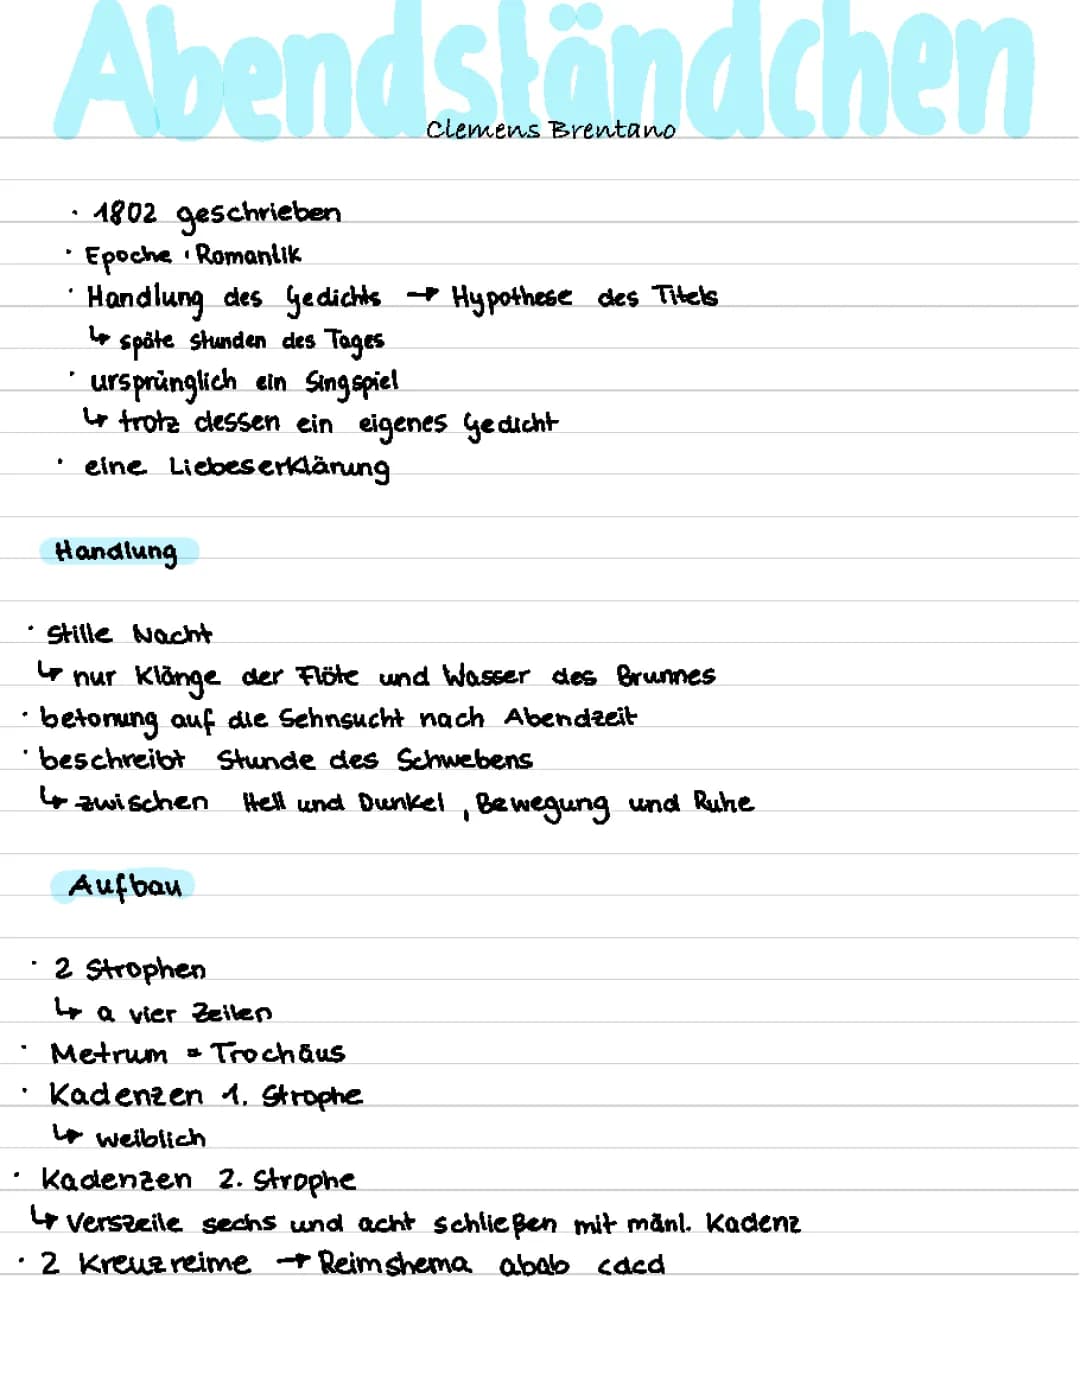 Abendständchen
Clemens Brentano
· 1802 geschrieben
· Epoche : Romantik
· Handlung des Gedichts → Hypothese des Titels
↳ späte Stunden des Tages
· ursprünglich ein Singspiel
↳ trotz dessen ein eigenes Gedicht
· eine Liebeserklärung
Handlung
· Stille Nacht
↳ nur Klänge der Flöte und Wasser des Brunnes
· betonung auf die Sehnsucht nach Abendzeit
· beschreibt Stunde des Schwebens
↳ zwischen Hell und Dunkel , Bewegung und Ruhe
Aufbau
· 2 Strophen
↳ a vier Zeilen
· Metrum = Trochäus
· Kadenzen 1. Strophe
↳ weiblich
· Kadenzen 2. Strophe
↳ Verszeile sechs und acht schließen mit mänl. Kadenz
· 2 Kreuzreime → Reimshema abab cdcd